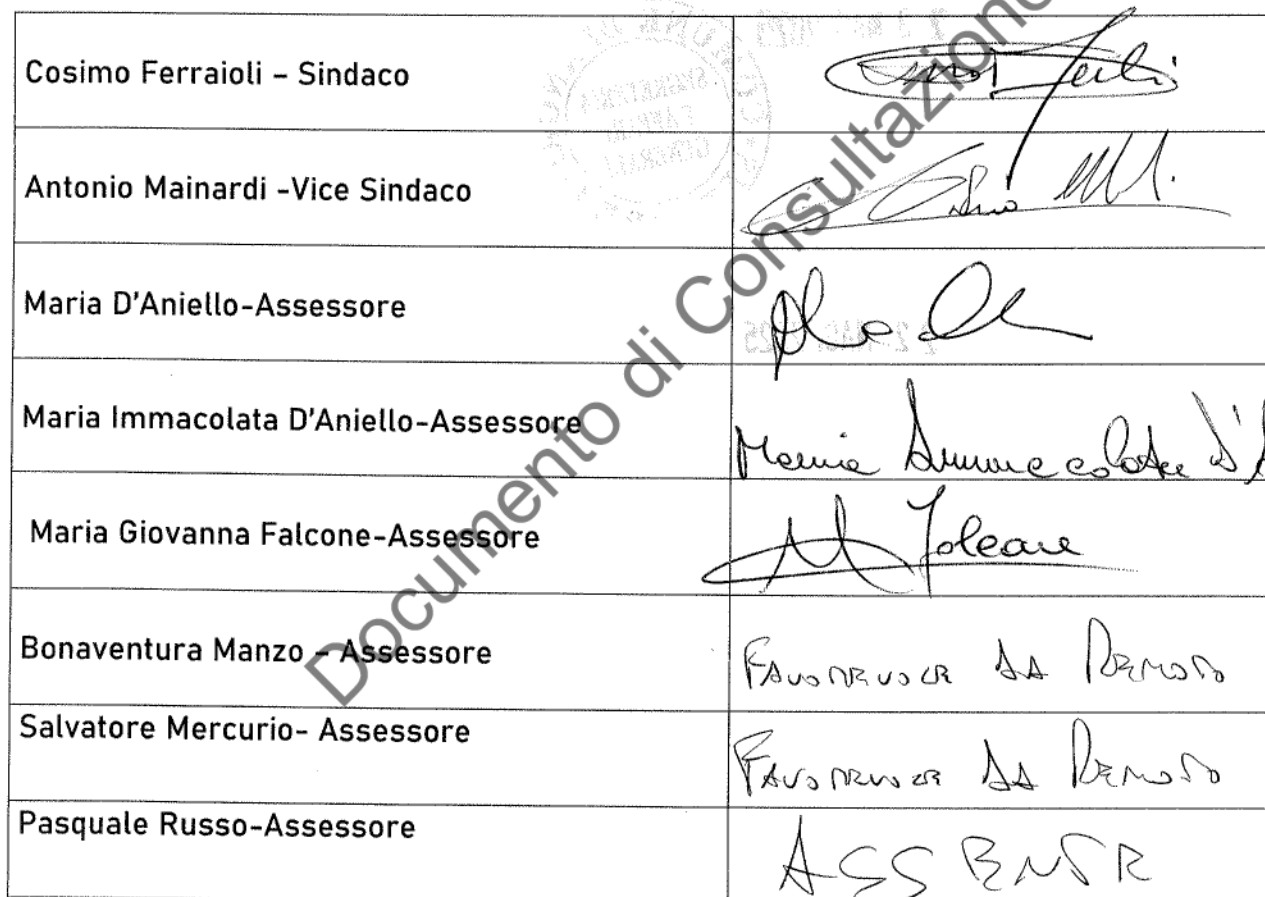 Cosimo Ferraioli – Sindaco
Antonio Mainardi -Vice Sindaco
Maria D'Aniello-Assessore
Maria Immacolata D'Aniello-Assessore Maria Immacolata D'A
Maria Giovanna Falcone-Assessore M Falcone
Bonaventura Manzo – Assessore FAVOREVOLE DA REMOTO
Salvatore Mercurio- Assessore FAVOREVOLE DA REMOTO
Pasquale Russo-Assessore ASSENTE
Documento di Consultazione